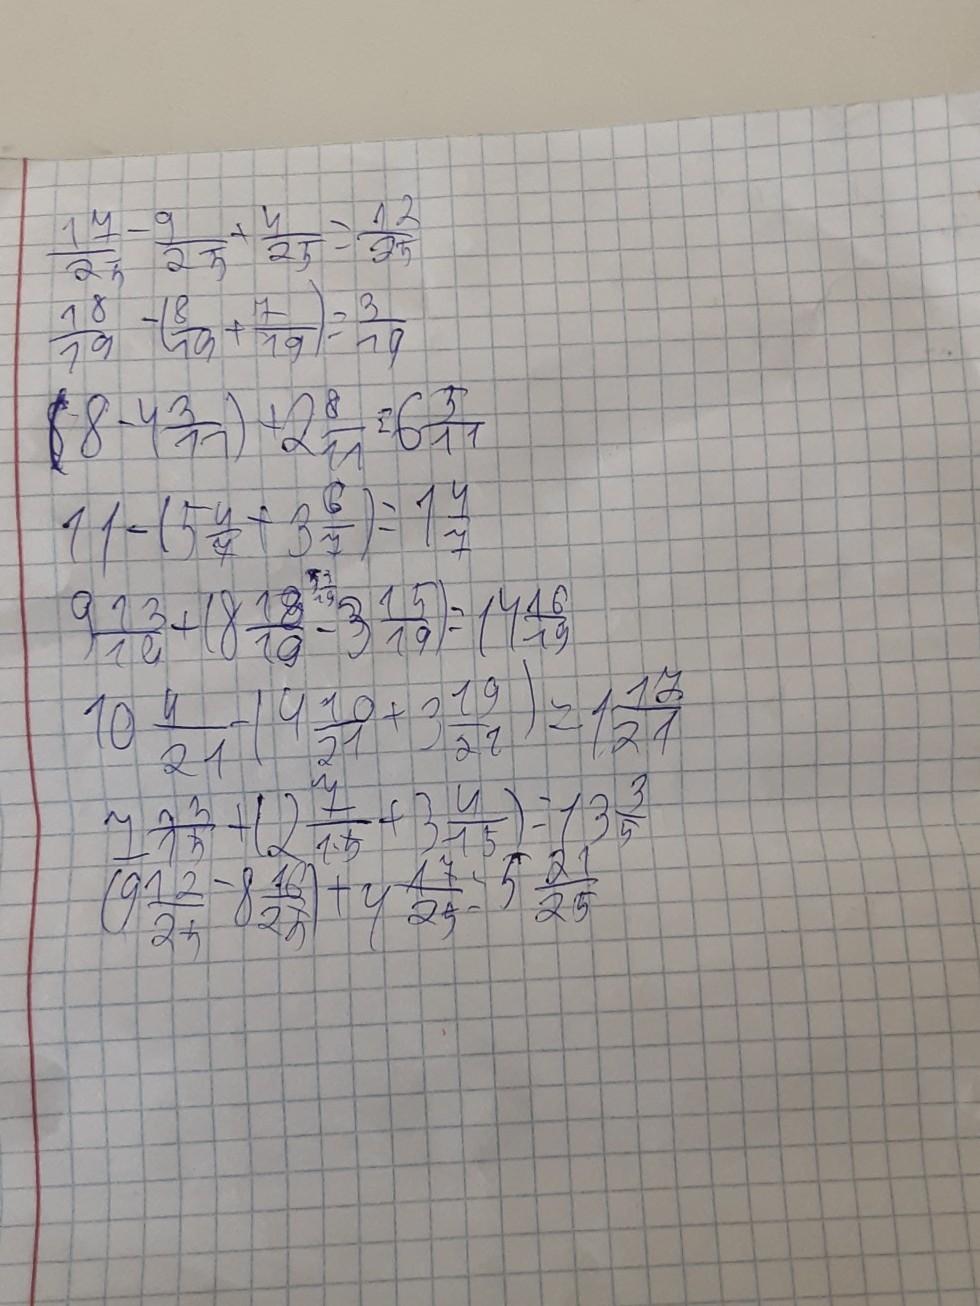 17/25 - 9/25 + 4/25 = 12/25
18/19 - (8/19 + 7/19) = 3/19
(8 - 4 3/11) + 2 8/11 = 6 5/11
11 - (5 4/7 + 3 6/7) = 1 4/7
9 13/19 + (8 18/19 - 3 15/19) = 14 16/19
10 4/21 - (4 10/21 + 3 19/21) = 1 17/21
7 13/15 + (2 7/15 + 3 4/15) = 13 3/5
(9 12/25 - 8 16/25) + 4 17/25 = 5 21/25